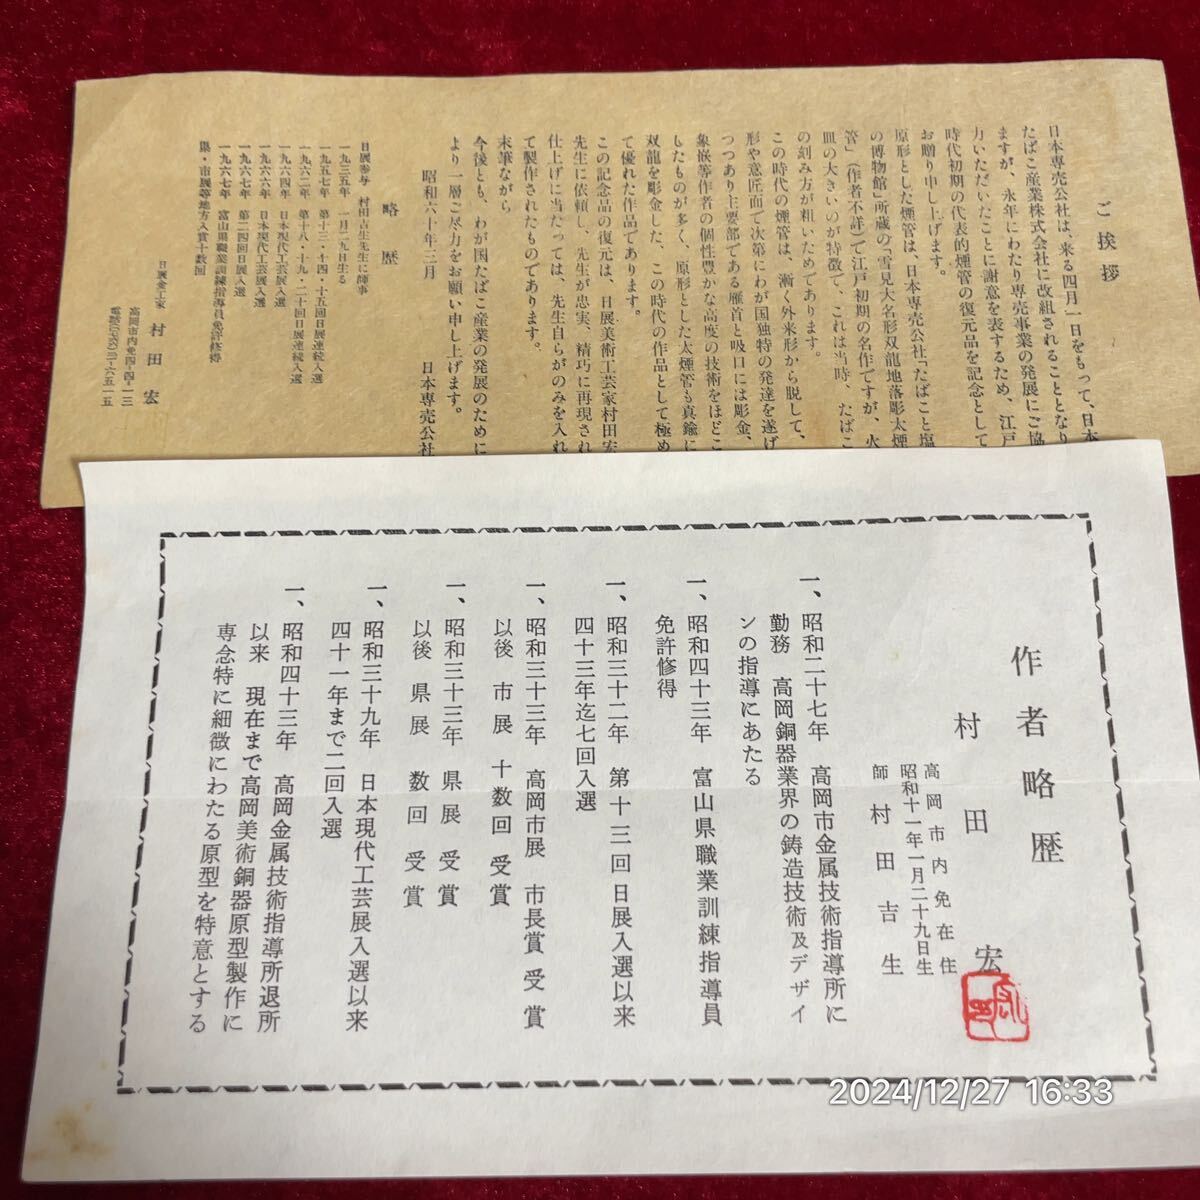 ご挨拶
日本専売公社は、来る四月一日をもって、日本
たばこ産業株式会社に改組されることとなり
ますが、永年にわたり専売事業の発展にご協
力いただいたことに謝意を表するため、江戸
時代初期の代表的煙管の復元品を記念として
お贈り申し上げます。
原形とした煙管は、日本専売公社「たばこと塩
の博物館」所蔵の「雪見大名形双龍地落彫太煙
管」(作者不詳)で江戸初期の名作ですが、火
皿の大きいのが特徴で、これは当時、たばこ
の刻み方が粗いためであります。
この時代の煙管は、漸く外来形から脱して、
形や意匠面で次第にわが国独特の発達を遂げ
つつあり主要部である雁首と吸口には彫金、
象嵌等作者の個性豊かな高度の技術をほどこ
したものが多く、原形とした太煙管も真鍮に
双龍を彫金した、この時代の作品として極め
て優れた作品であります。
この記念品の復元は、日展美術工芸家村田宏
先生に依頼し、先生が忠実、精巧に再現され
仕上げに当たっては、先生自らがのみを入れ
て製作されたものであります。
末筆ながら
今後とも、わが国たばこ産業の発展のために
より一層ご尽力をお願い申し上げます。
昭和六十年三月
日本専売公社
略歴
日展参与 村田吉生先生に師事
一九三五年 一月二九日生る
一九五七年 第十三・十四・十五回日展連続入選
一九六二年 第十八・十九・二十回日展連続入選
一九六四年 日本現代工芸展入選
一九六六年 日本現代工芸展入選
一九六六年 第二四回日展入選
一九六七年 富山県職業訓練指導員免許修得
県・市展等地方入賞十数回
日展金工家 村田宏
高岡市内免四-四-一三
作者略歴
村田宏
高岡市内免在住
昭和十一年一月二十九日生
師 村田吉生
一、昭和二十七年 高岡市金属技術指導所に
勤務 高岡銅器業界の鋳造技術及デザイ
ンの指導にあたる
一、昭和四十三年 富山県職業訓練指導員
免許修得
一、昭和三十二年 第十三回日展入選以来
四十三年迄七回入選
一、昭和三十三年 高岡市展 市長賞受賞
以後 市展 十数回 受賞
一、昭和三十三年 県展 受賞
以後 県展 数回 受賞
一、昭和三十九年 日本現代工芸展入選以来
四十一年まで二回入選
一、昭和四十三年 高岡金属技術指導所退所
以来 現在まで高岡美術銅器原型製作に
専念特に細微にわたる原型を特意とする
2024/12/27 16:33